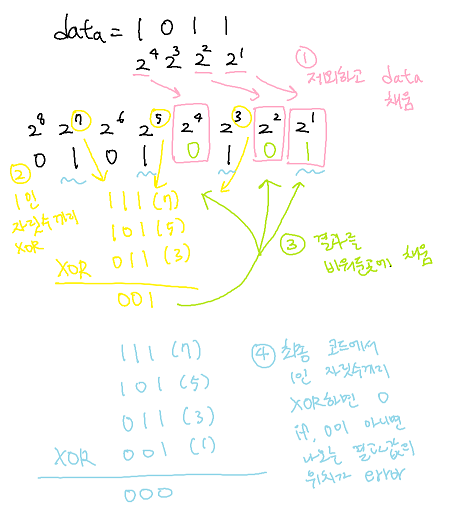 data = 1 0 1 1
2⁴ 2³ 2² 2¹
① 제외하고 data
채움
2⁸ 2⁷ 2⁶ 2⁵ 2⁴ 2³ 2² 2¹
0 1 0 1 0 1 0 1
② 1인
자릿수끼리
XOR
111 (7)
101 (5)
XOR 011 (3)
001
③ 결과를
비워둔곳에 채움
111 (7)
101 (5)
011 (3)
XOR 001 (1)
000
④ 최종 코드에서
1인 자릿수끼리
XOR하면 0
if, 0이 아니면
나오는 결과값의
위치가 에러